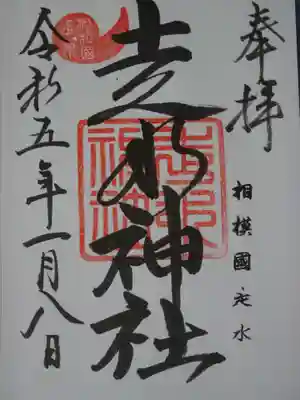 奉拝
相模國走水
走水神社
令和五年一月八日